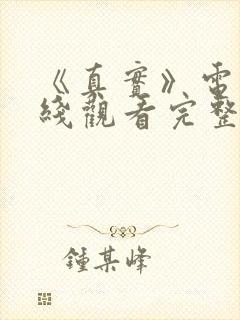 《真實》電
綫觀看完整
鍾某峰